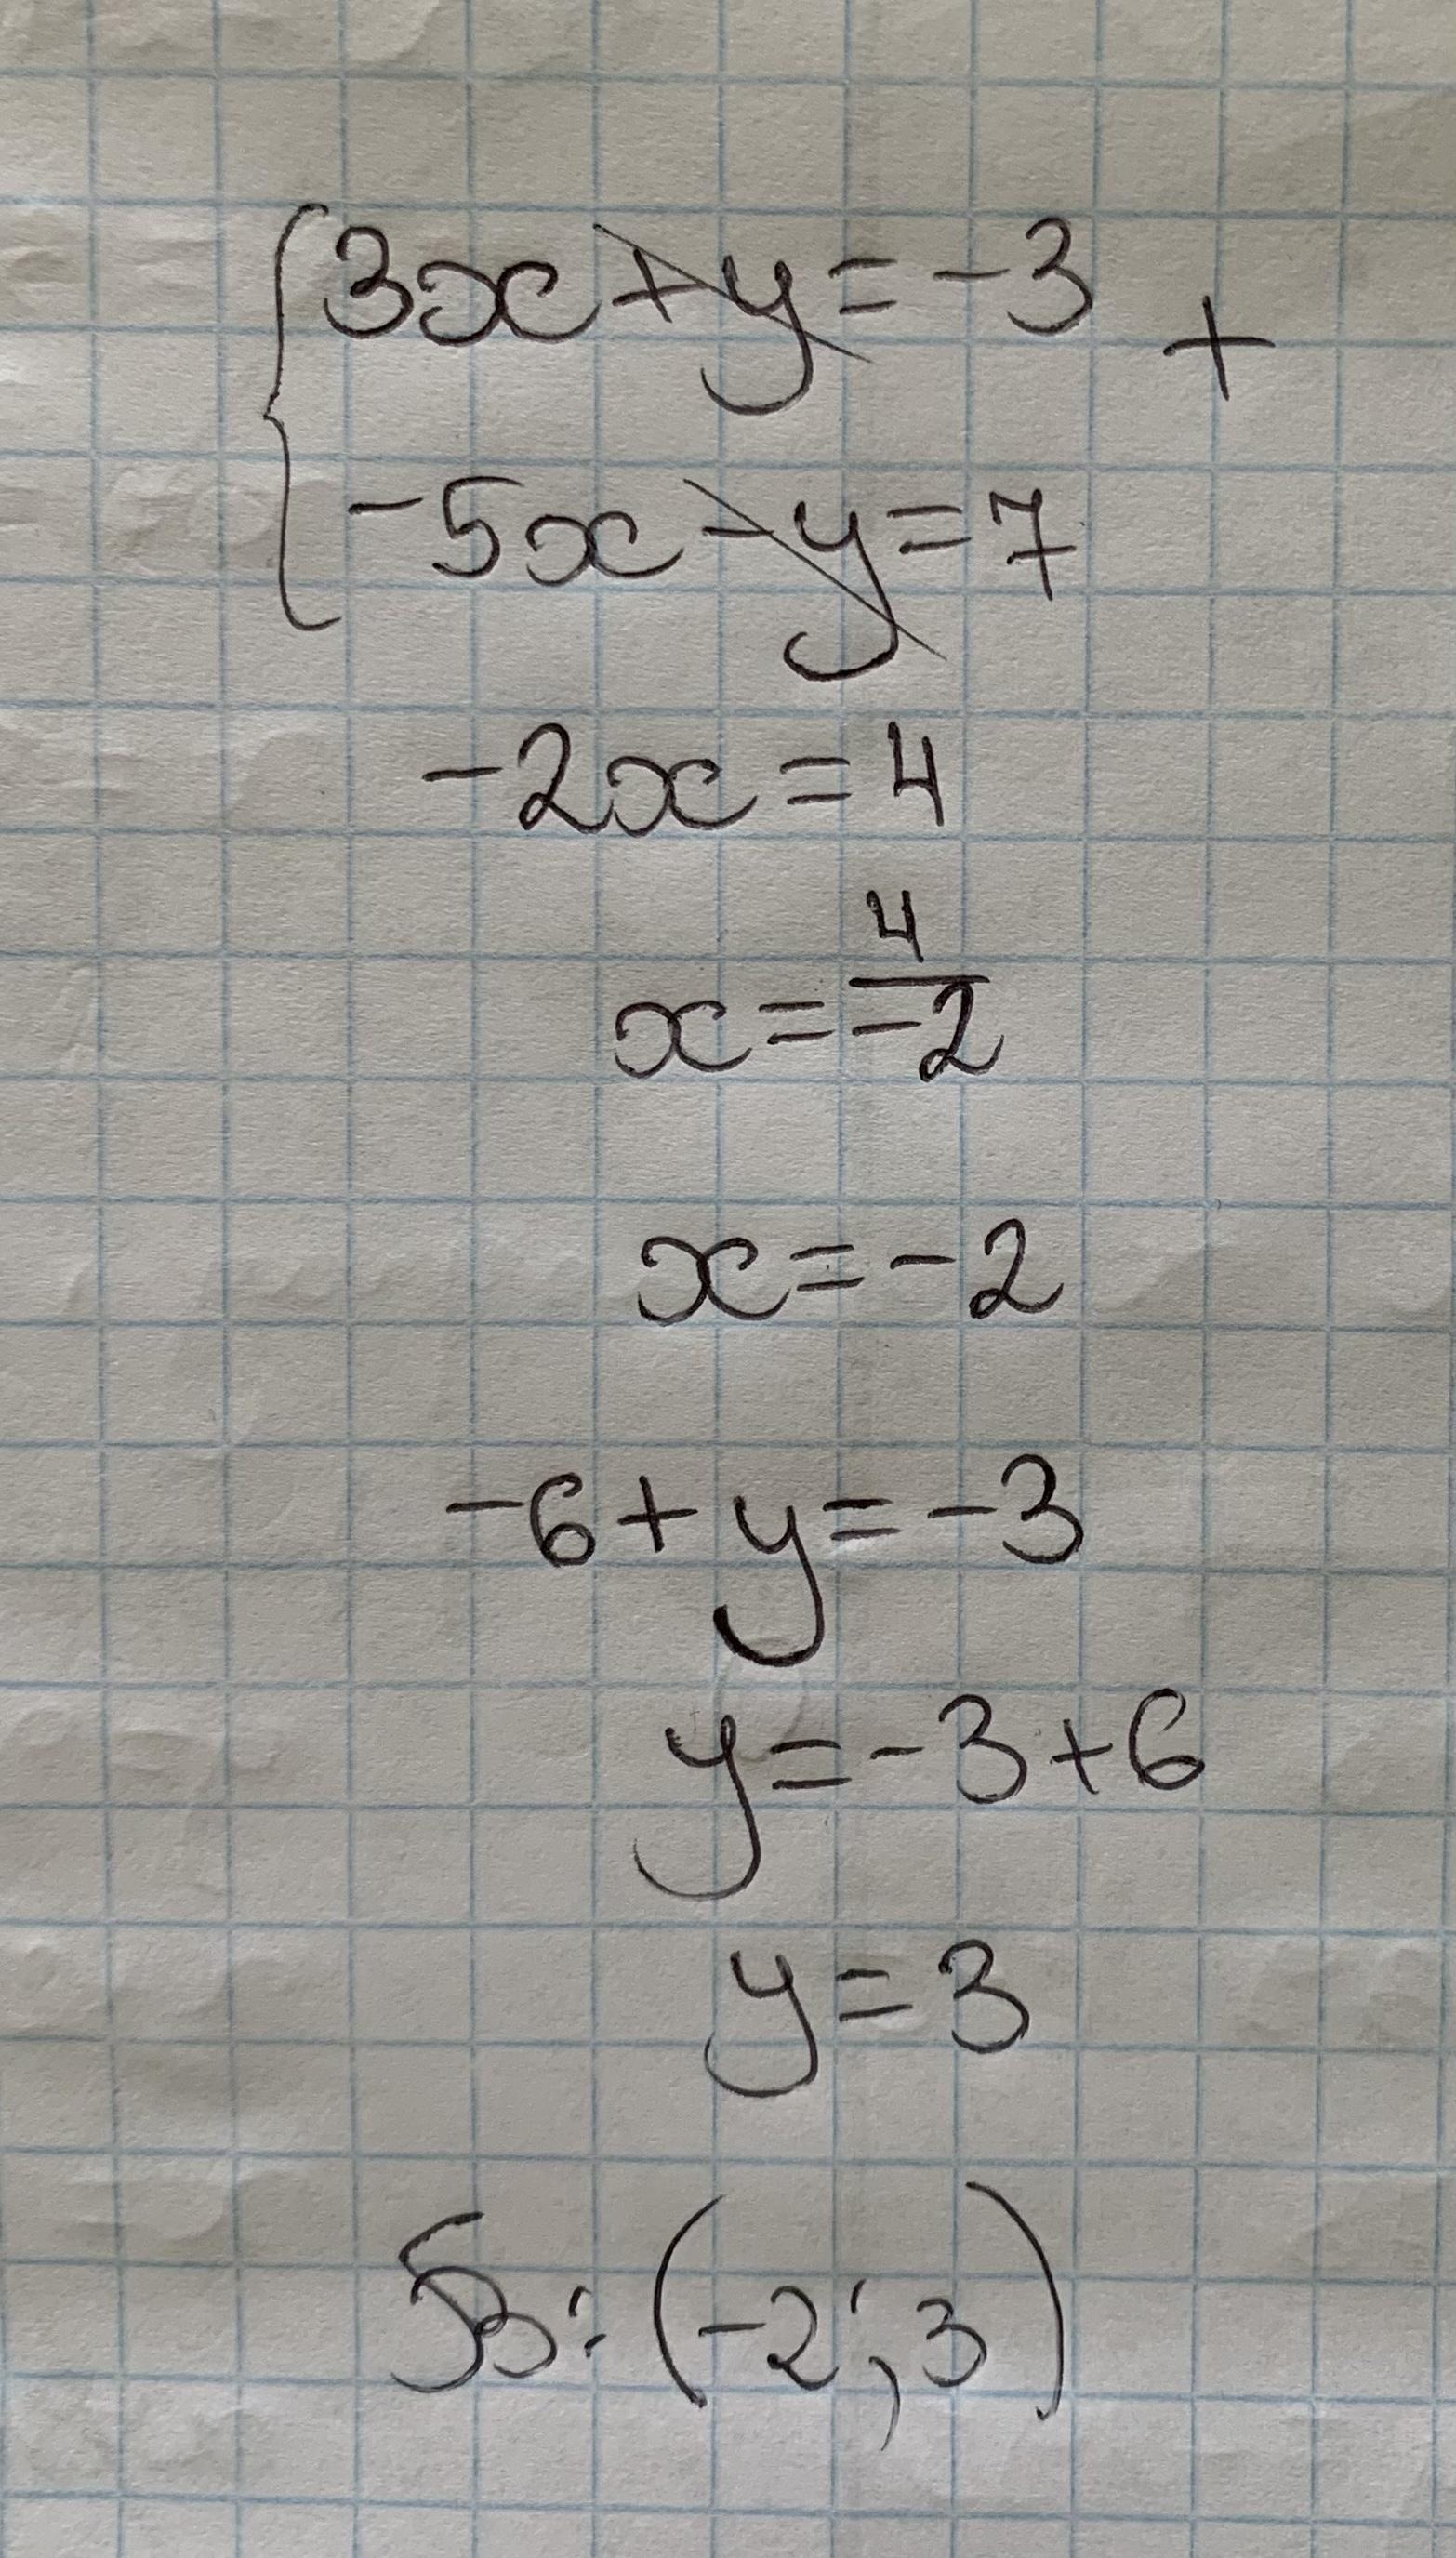 { 3x + y = -3 +
-5x - y = 7
-2x = 4
x = 4/-2
x = -2
-6 + y = -3
y = -3 + 6
y = 3
(-2; 3)